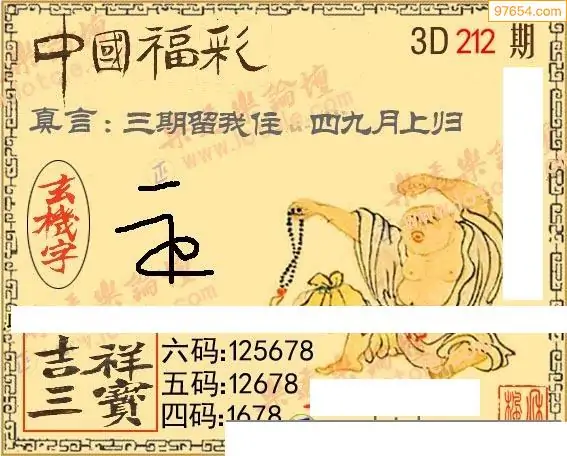 97654.com
中國福彩
3D 212 期
真言：三期留我住 四九月上归
玄機字
吉祥三寶
六码:125678
五码:12678
四码:1678